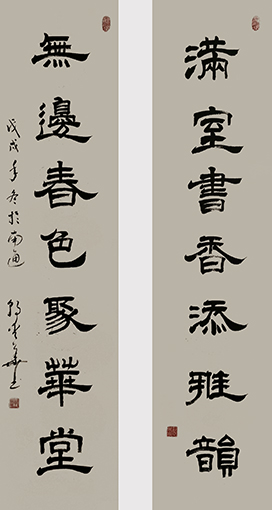 滿室書香添雅韻
無邊春色聚華堂
戊戌年冬於南通